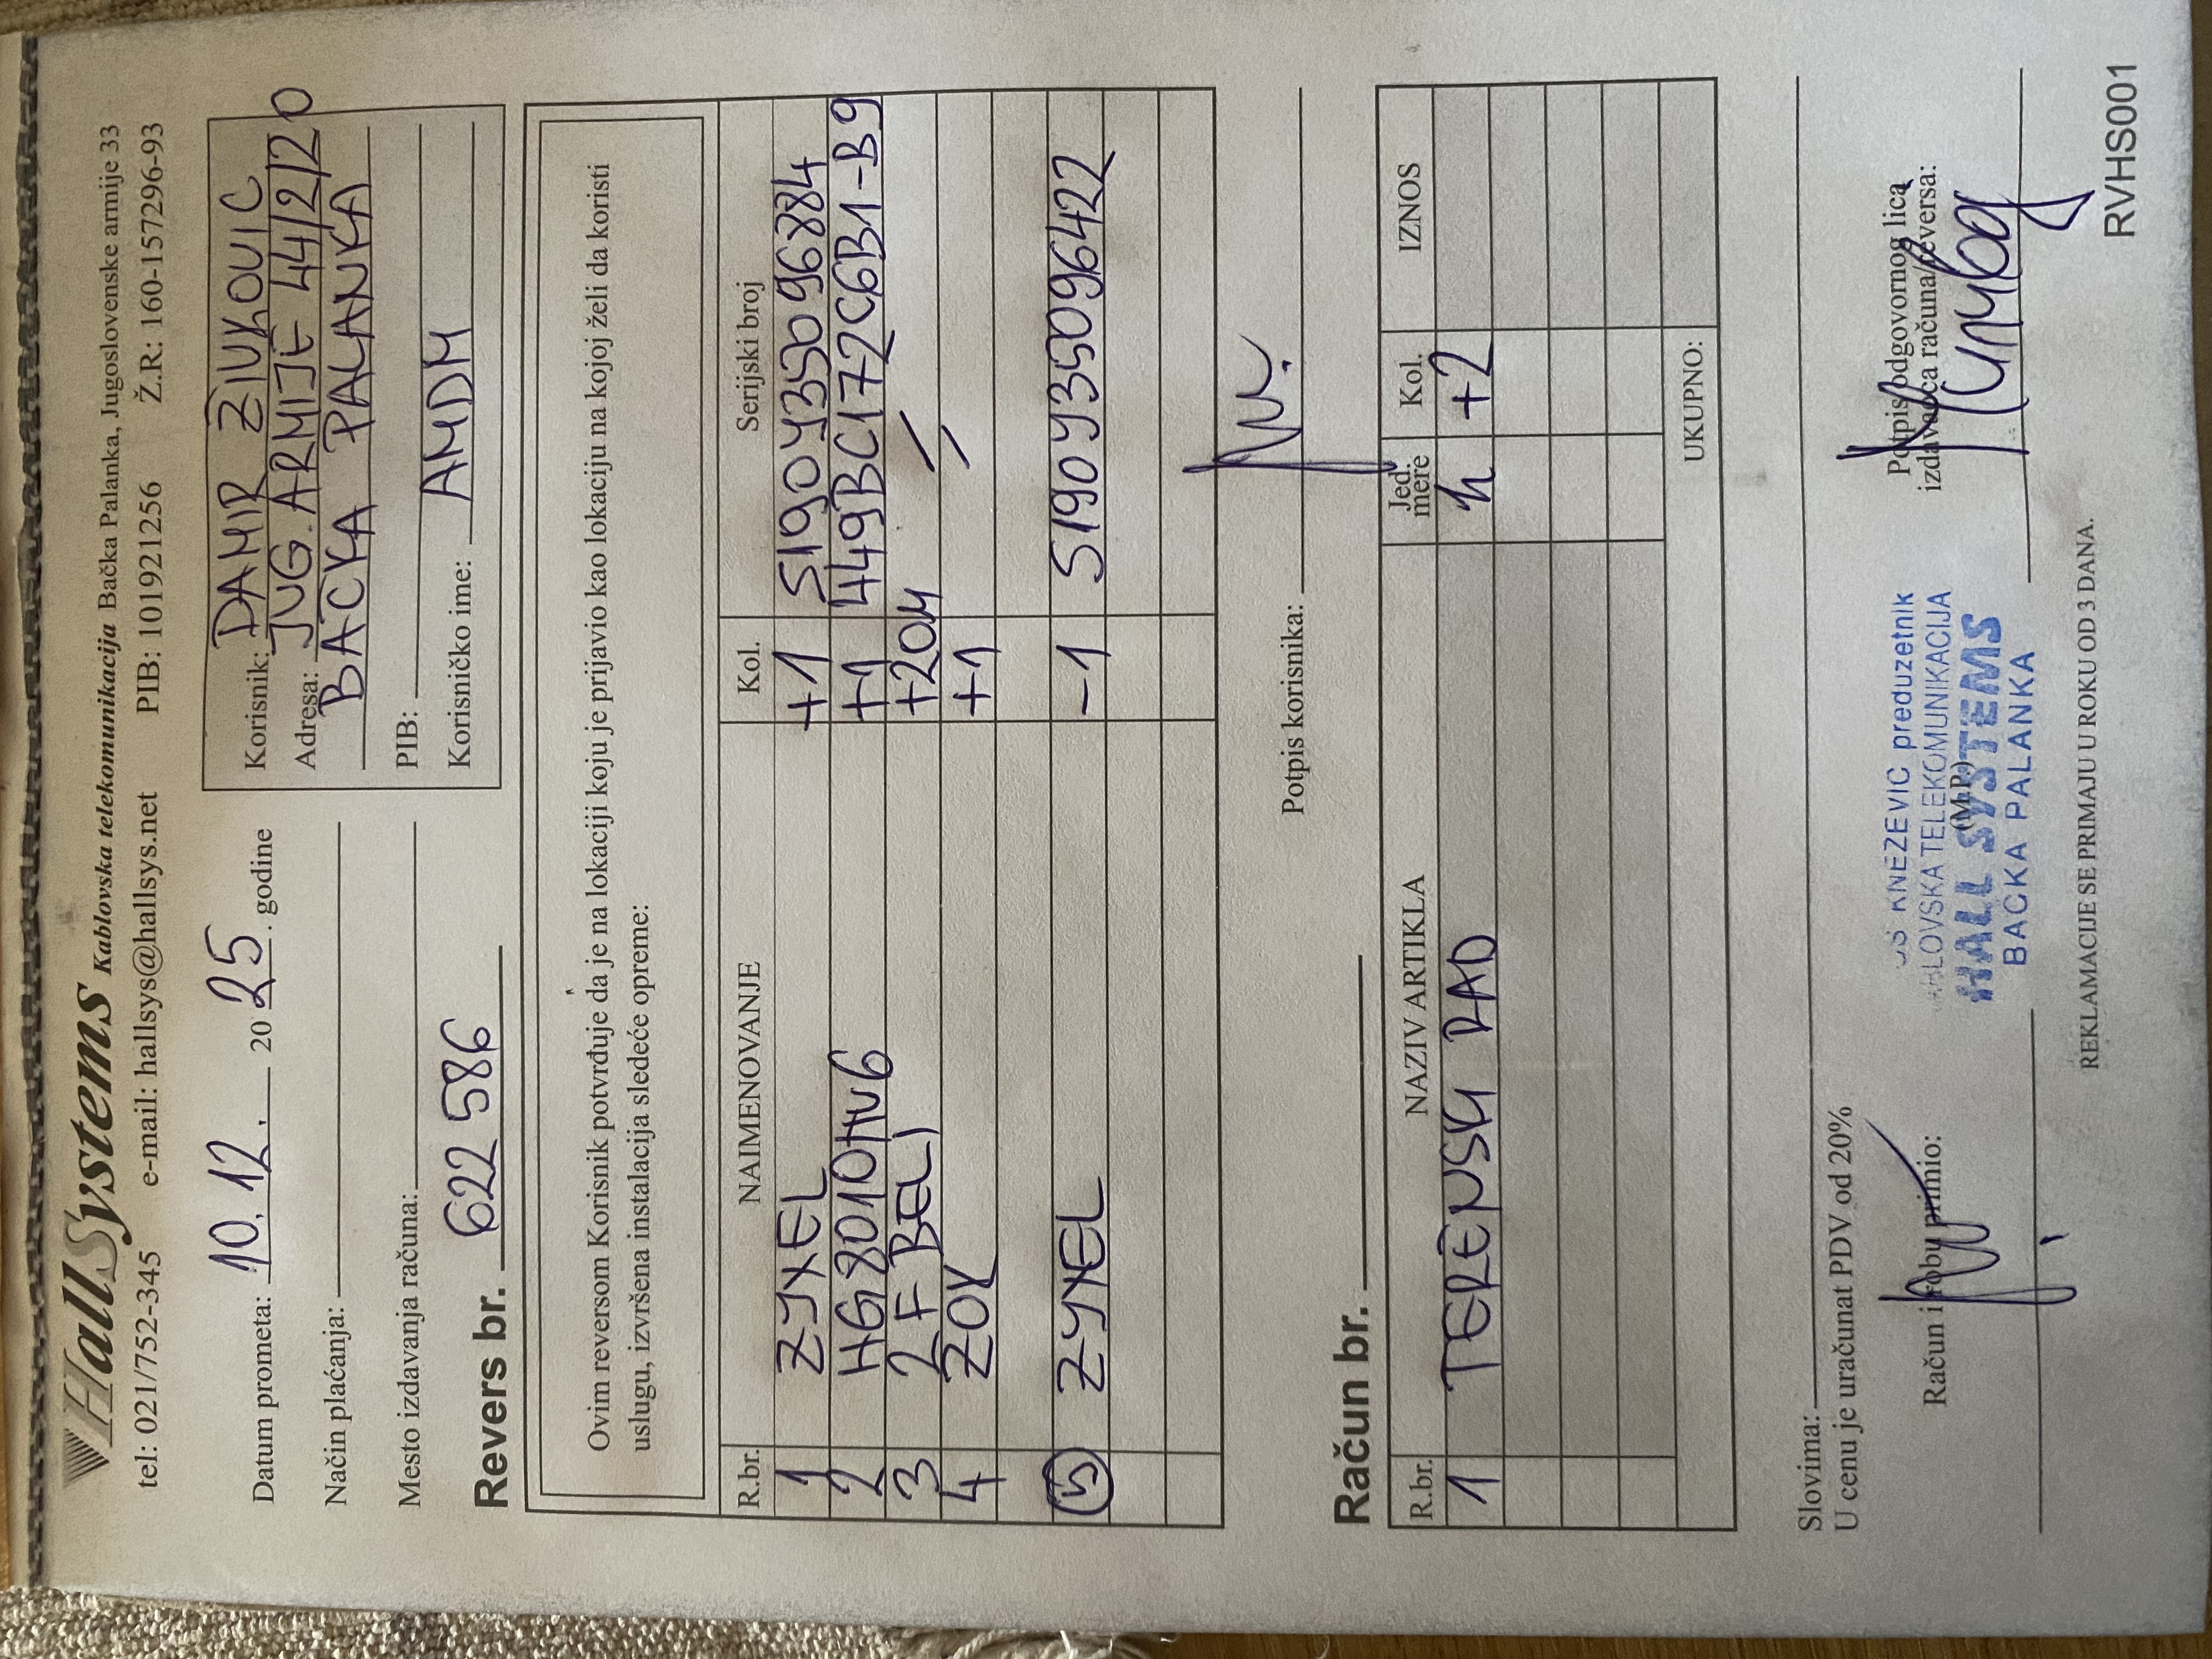 HallSystems Kablovska telekomunikacija Bačka Palanka, Jugoslovenske armije 33
tel: 021/752-345 e-mail: hallsys@hallsys.net PIB: 101921256 Ž.R: 160-157296-93
Datum prometa: 10.12. 2025. godine
Način plaćanja:
Mesto izdavanja računa:
Revers br. 622586
Korisnik: DAMIR ZIVKOVIC
Adresa: JUG. ARMIJE 44/2/20
BACKA PALANKA
PIB:
Korisničko ime: AMDM
Ovim reversom Korisnik potvrđuje da je na lokaciji koju je prijavio kao lokaciju na kojoj želi da koristi
uslugu, izvršena instalacija sledeće opreme:
R.br. NAIMENOVANJE Kol. Serijski broj
1 ZYXEL +1 S190Y35096884
2 HG8010Hv6 +1 449BC172C6B1-B9
3 2F BELI +20M /
4 ZOK +1 /
5 ZYXEL -1 S190Y35096422
Potpis korisnika:
Račun br.
R.br. NAZIV ARTIKLA Jed. mere Kol. IZNOS
1 TERENSKI RAD h +2
UKUPNO:
Slovima:
U cenu je uračunat PDV od 20%
Račun i robu primio:
KNEZEVIC preduzetnik
TELEKOMUNIKACIJA
(M.P.)
HALL SYSTEMS
BACKA PALANKA
Potpis odgovornog lica
izdavaoca računa/reversa:
REKLAMACIJE SE PRIMAJU U ROKU OD 3 DANA.
RVHS001